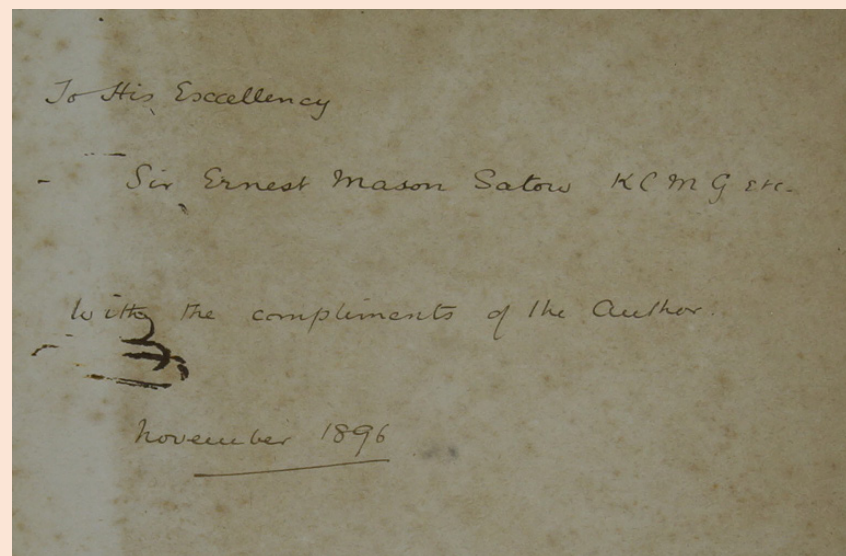 To His Excellency
Sir Ernest Mason Satow KCMG etc.
With the compliments of the Author.
November 1896